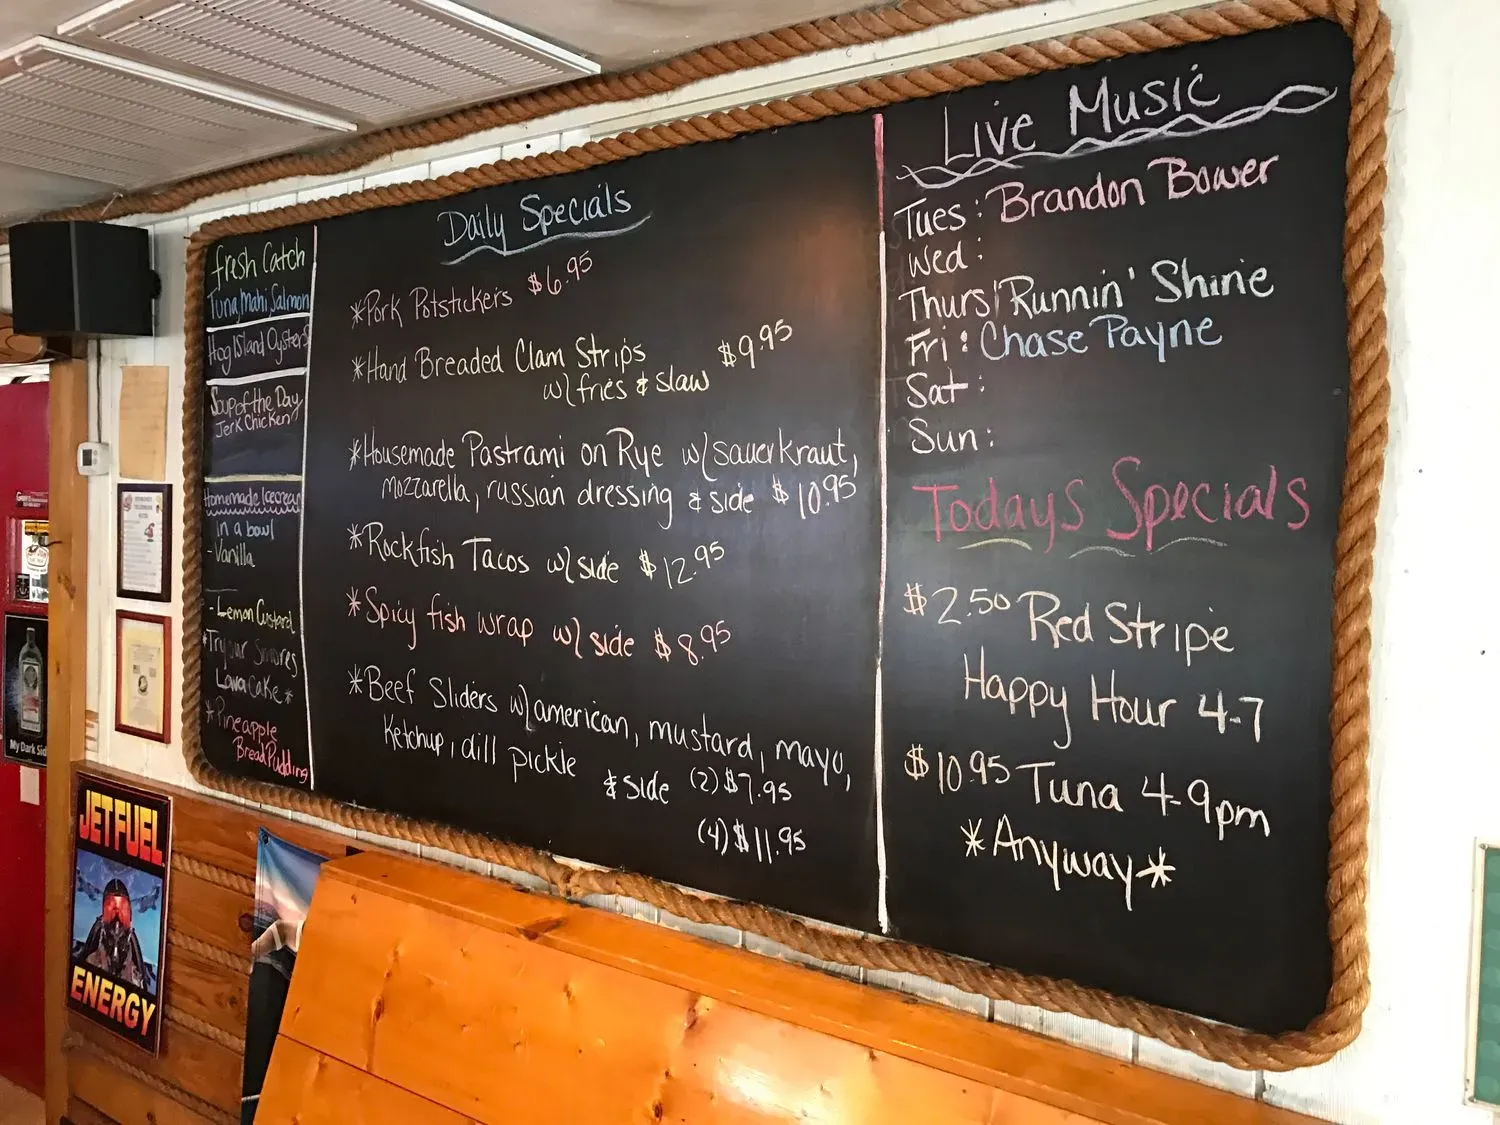 fresh Catch
Tuna, Mahi, Salmon
Hog Island Oysters
Soup of the Day
Jerk Chicken
Homemade Icecream
in a bowl
- Vanilla
- Lemon Custard
*Try our Smores
Lava Cake*
*Pineapple
Bread Pudding
Daily Specials
*Pork Potstickers $6.95
*Hand Breaded Clam Strips
w/ fries & slaw $9.95
*Housemade Pastrami on Rye w/ sauerkraut,
mozzarella, russian dressing & side $10.95
*Rockfish Tacos w/ side $12.95
*Spicy fish wrap w/ side $8.95
*Beef Sliders w/ american, mustard, mayo,
Ketchup, dill pickle & side (2) $7.95
(4) $11.95
Live Music
Tues: Brandon Bower
Wed:
Thurs: Runnin' Shine
Fri: Chase Payne
Sat:
Sun:
Todays Specials
$2.50 Red Stripe
Happy Hour 4-7
$10.95 Tuna 4-9pm
*Anyway*
My Dark Sid
JET FUEL
ENERGY